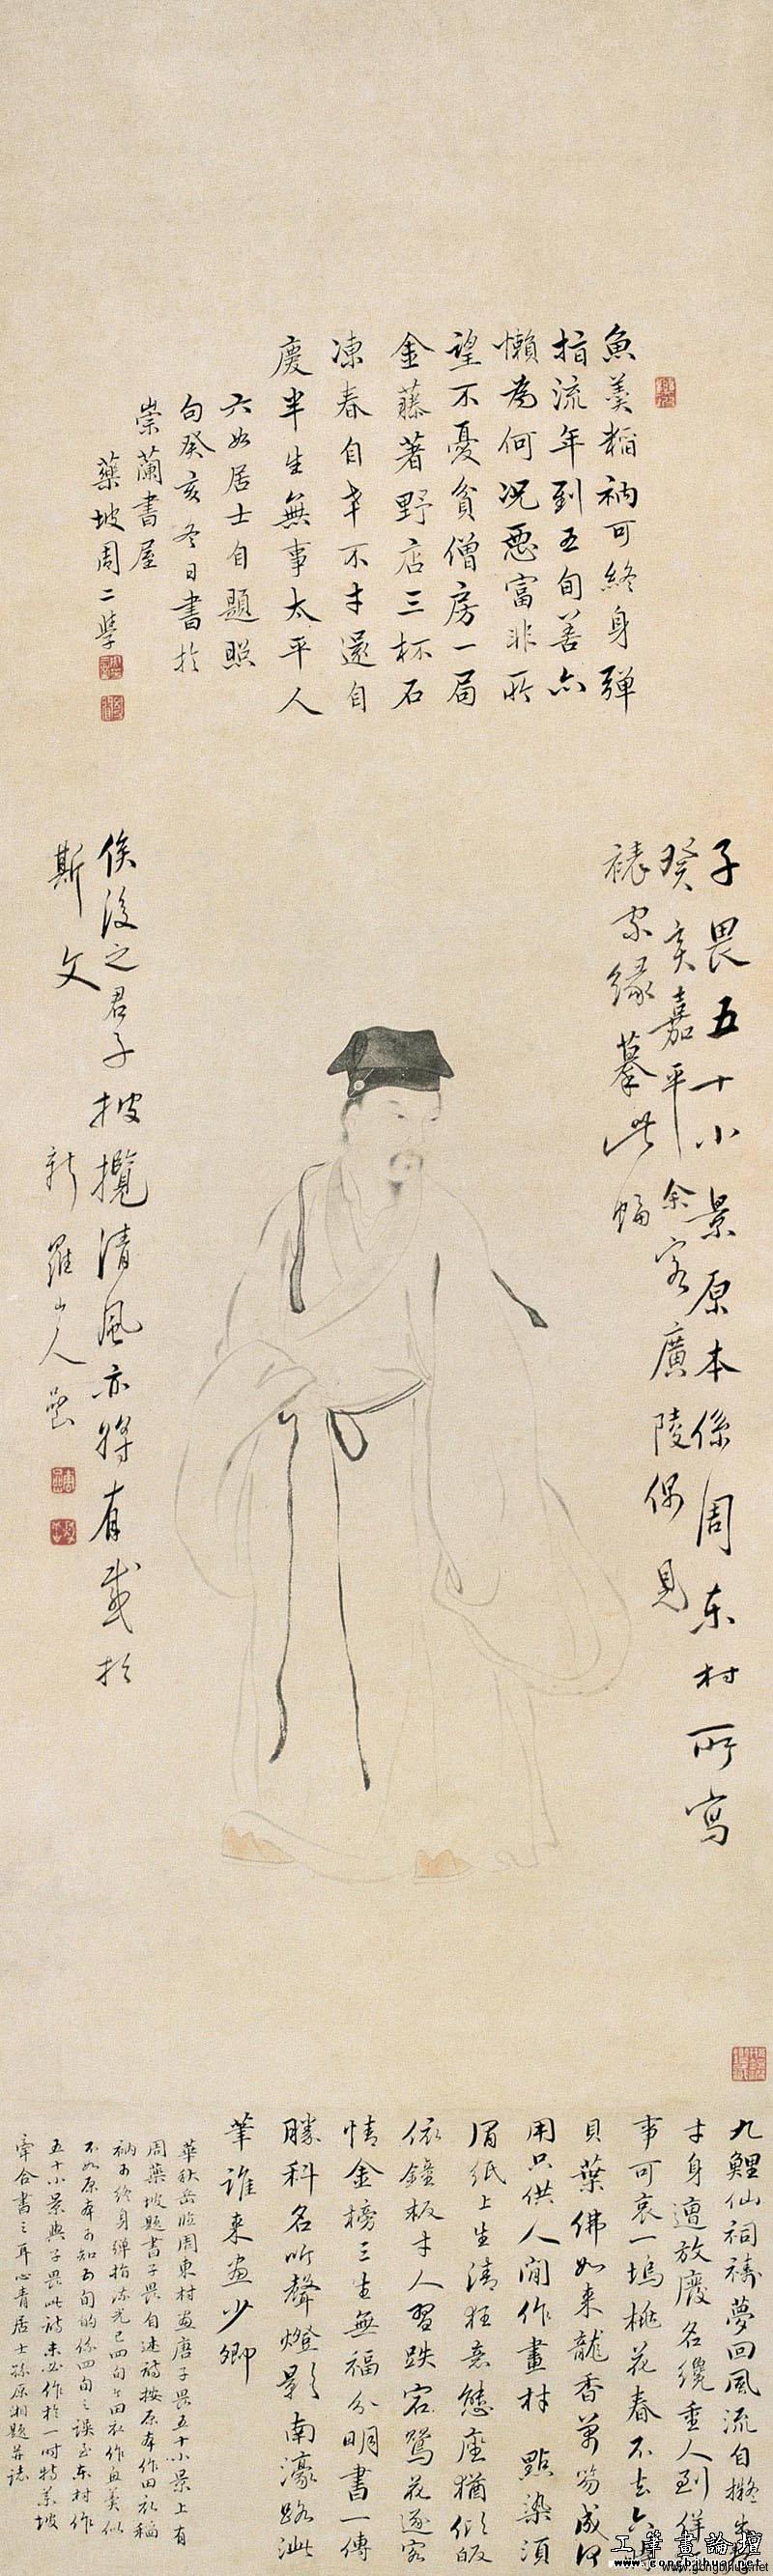 魚羹稲衲可終身彈
指流年到五旬善亦
懶為何況惡富非所
望不憂貧僧房一局
金藤著野店三杯石
凍春自幸不才還自
慶半生無事太平人
六如居士自題照
句癸亥冬日書於
崇蘭書屋
藥坡周二學
子畏五十小景原本係周東村所寫
癸亥嘉平余客廣陵偶見
裱家緣摹此幅
俟後之君子披攬清風亦將有感於
斯文
新羅山人嵒
九鯉仙祠禱夢回風流自擬
才身遭放廢名纔重人到
事可哀一塢桃花春不去
貝葉佛如來龍香萬笏成何
用只供人間作畫材 點染須
眉紙上生清狂意態座猶傾
依鐘板才人習跌宕鶯花逐客
情金榜三生無福分明書一傳
勝科名吟聲燈影南濠路此
筆誰來畫少卿
華秋岳臨周東村畫唐子畏五十小景上有
周藥坡題書子畏自述詩按原本作田衣稲
衲可終身彈指流光已四旬今田衣作魚羹似
不如原本可知五旬的係四旬之誤至東村作
五十小景與子畏此詩未必作於一時特藥坡
牽合書之耳心青居士孫原湘題并誌
工筆畫論壇
www.gongbihua.net